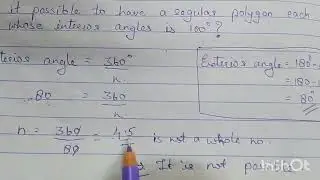 it possible to have a regular polygon each
whose interior angles is 100°?
terior angle = 360°
n
80 = 360
n
n = 360 = 4.5 is not a whole no.
80
It is not possi
Exterior angle = 180-
= 180-1
= 80
InShot